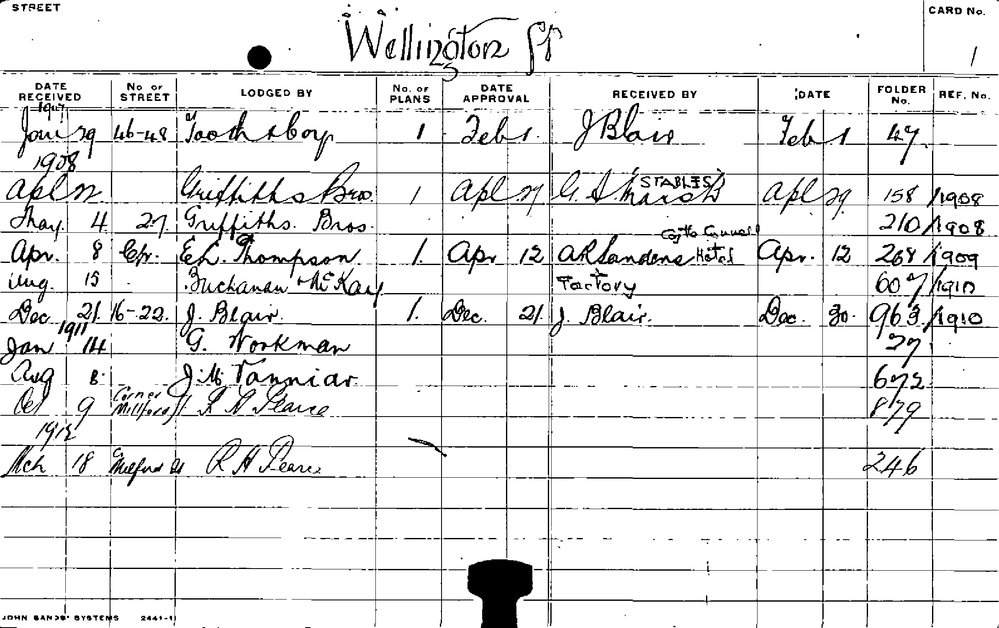 STREET Wellington St CARD No. 1
DATE RECEIVED No. OF STREET LODGED BY No. OF PLANS DATE APPROVAL RECEIVED BY DATE FOLDER No. REF. No.
1907
Jan 29 46-48 Tooth & Coy 1 Feb 1. J Blair Feb 1 47.
1908
STABLES
Apl 22. Griffiths Bros. 1 Apl 27 G. S. Apl 29. 158 /1908
May. 4 27. Griffiths. Bros. 210 /1908
Copy to Council
Apr. 8 Cr. E. L. Thompson. 1. Apr 12 A R Sanders Hotel Apr. 12 268 /1909
Aug. 15 Buchanan & McKay Factory 607 /1910
Dec 21. 16-22. J. Blair. 1. Dec. 21. J. Blair. Dec. 30. 963 /1910
1911
Jan 14 G. Workman 27.
Aug 8. J. M. Tanniar. 672
Oct 9 Corner Millford St. R H Pearce 879
1912
Mch 18 c Milford St R H Pearce 246
JOHN SANDS' SYSTEMS 2441-1